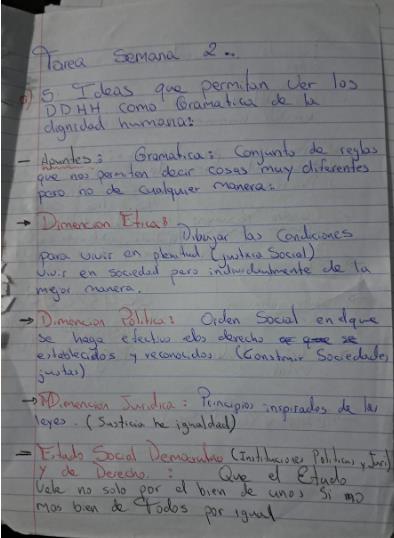 Tarea Semana 2..
5 Ideas que permitan ver los
DDHH como Gramatica de la
dignidad humana:
- Apuntes: Gramatica: Conjunto de reglas
que nos permiten decir cosas muy diferentes
pero no de cualquier manera:
→ Dimencion Etica:
Dibujar las Condiciones
para vivir en plenitud (justicia Social)
Vivir en sociedad pero individualmente de la
mejor manera.
→ Dimencion Politica: Orden Social en el que
se haga efectivo los derecho
establecidos y reconocidos. (Construir Sociedades
justas)
→ Dimencion Juridica: Principios inspirados de las
leyes. (Justicia he igualdad)
→ Estado Social Democratico (Instituciones Politicas y Juri)
y de Derecho.: Que el Estado
Vele no solo por el bien de unos Si no
mas bien de Todos por igual